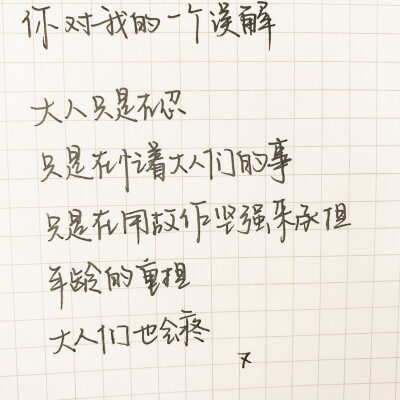 你对我的一个误解
大人只是在忍
只是在忙着大人们的事
只是在用故作坚强来承担
年龄的重担
大人们也会疼